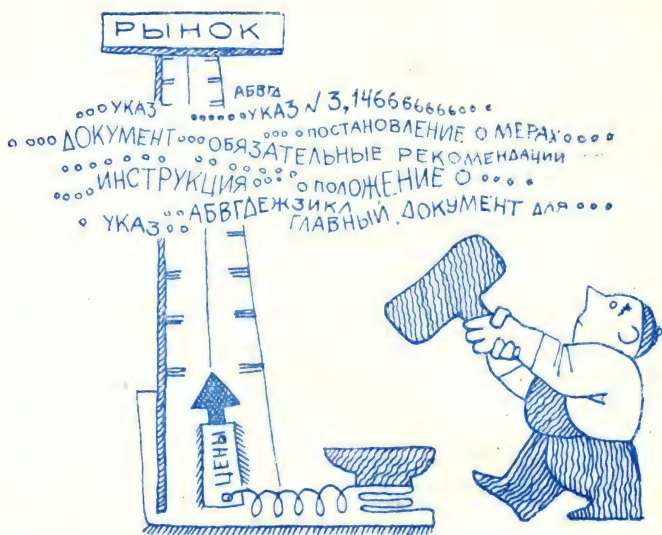 РЫНОК
АБВГД
УКАЗ УКАЗ √ 3,1466666666
ДОКУМЕНТ ПОСТАНОВЛЕНИЕ О МЕРАХ
ОБЯЗАТЕЛЬНЫЕ РЕКОМЕНДАЦИИ
ИНСТРУКЦИЯ ПОЛОЖЕНИЕ О
УКАЗ АБВГДЕЖЗИКЛ
ГЛАВНЫЙ ДОКУМЕНТ ДЛЯ
ЦЕНЫ